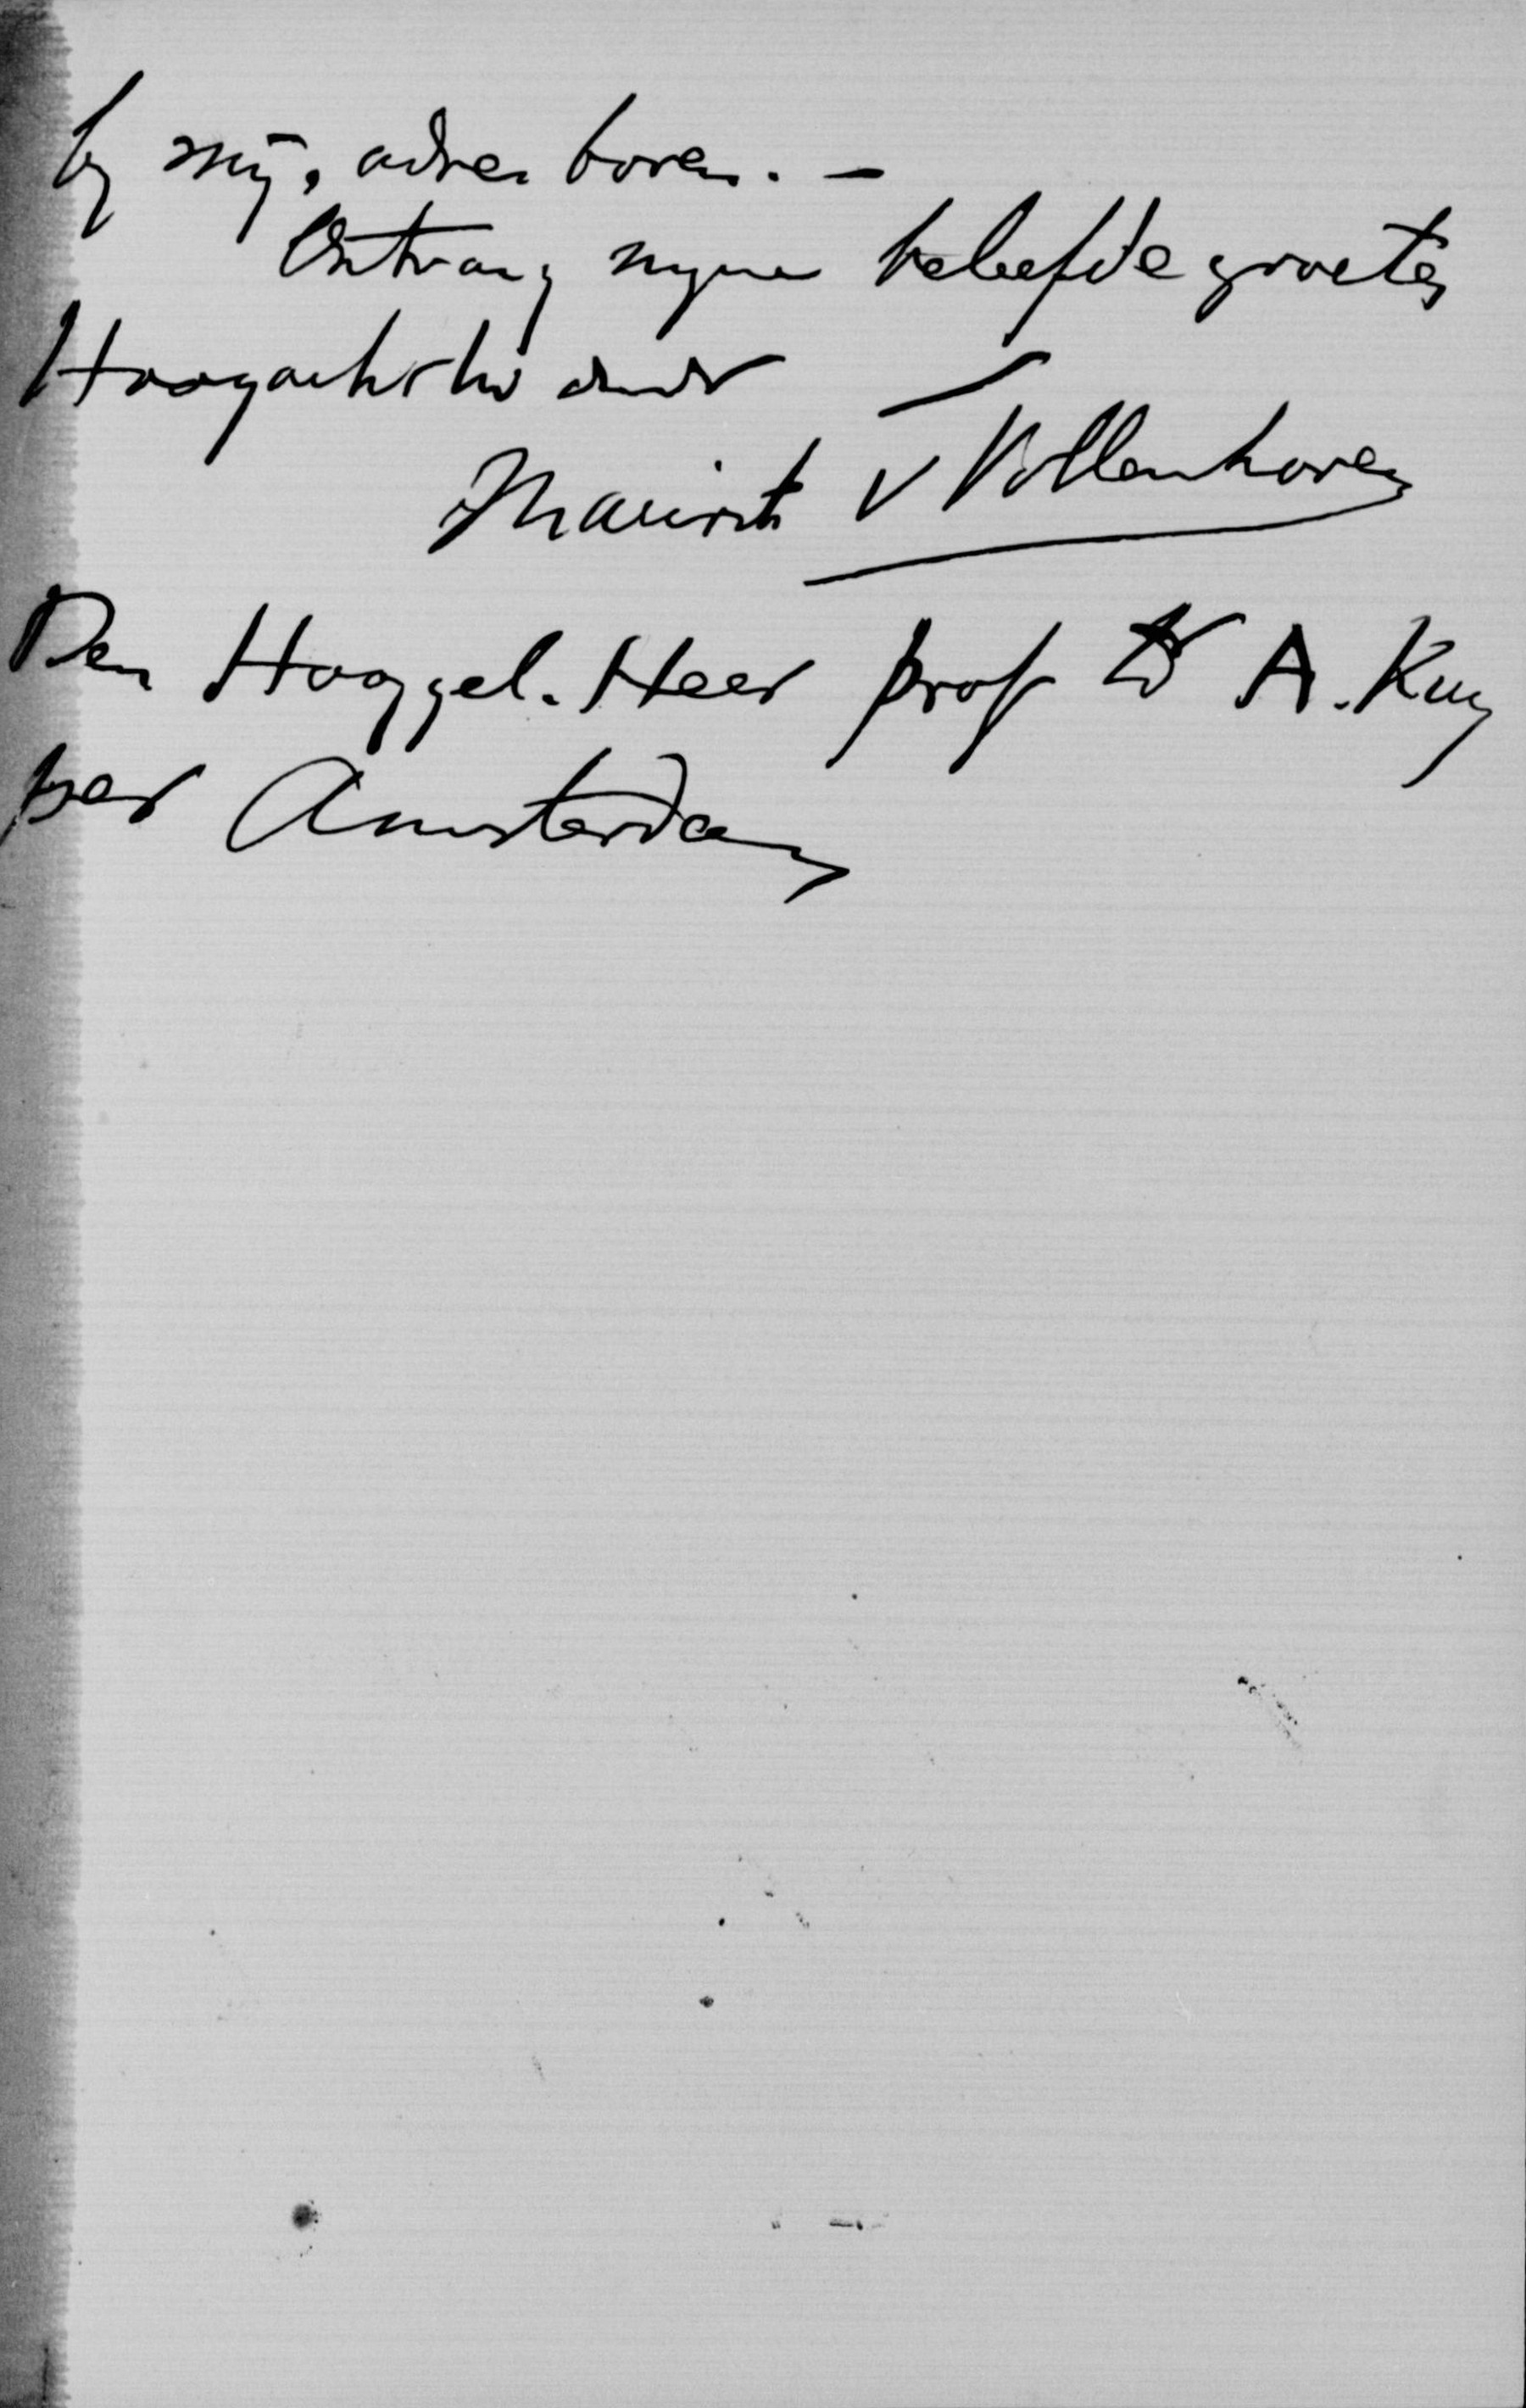 by mij, adres boven. —
Ontvang mijne beleefde groeten
Hoogachtend
Maurits v Vollenhoven
Den Hooggel. Heer prof Dr A. Kuy
per Amsterdam